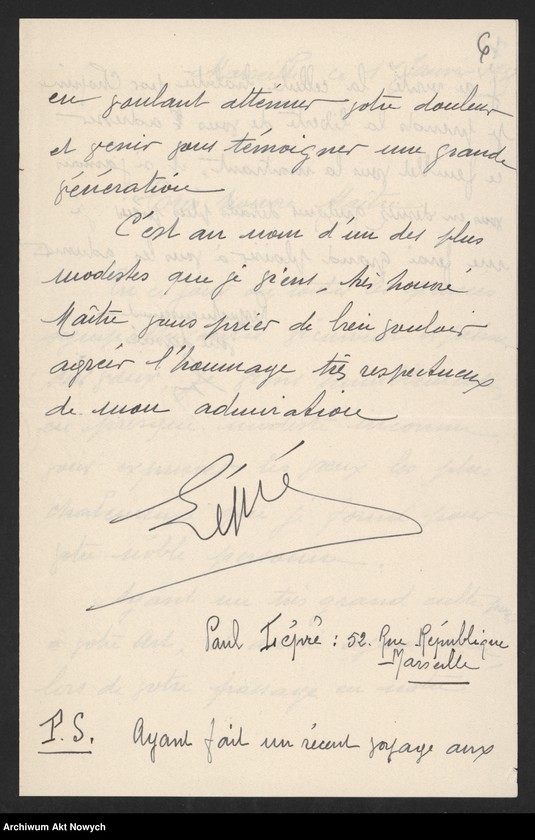 6
en voulant attenuer votre douleur
et venir vous témoigner une grande
vénération
C'est au nom d'un des plus
modestes que je viens, très honoré
Maître vous prier de bien vouloir
agréer l'hommage très respectueux
de mon admiration
Paul : 52. Rue République
Marseille
P.S. Ayant fait un récent voyage aux
Archiwum Akt Nowych